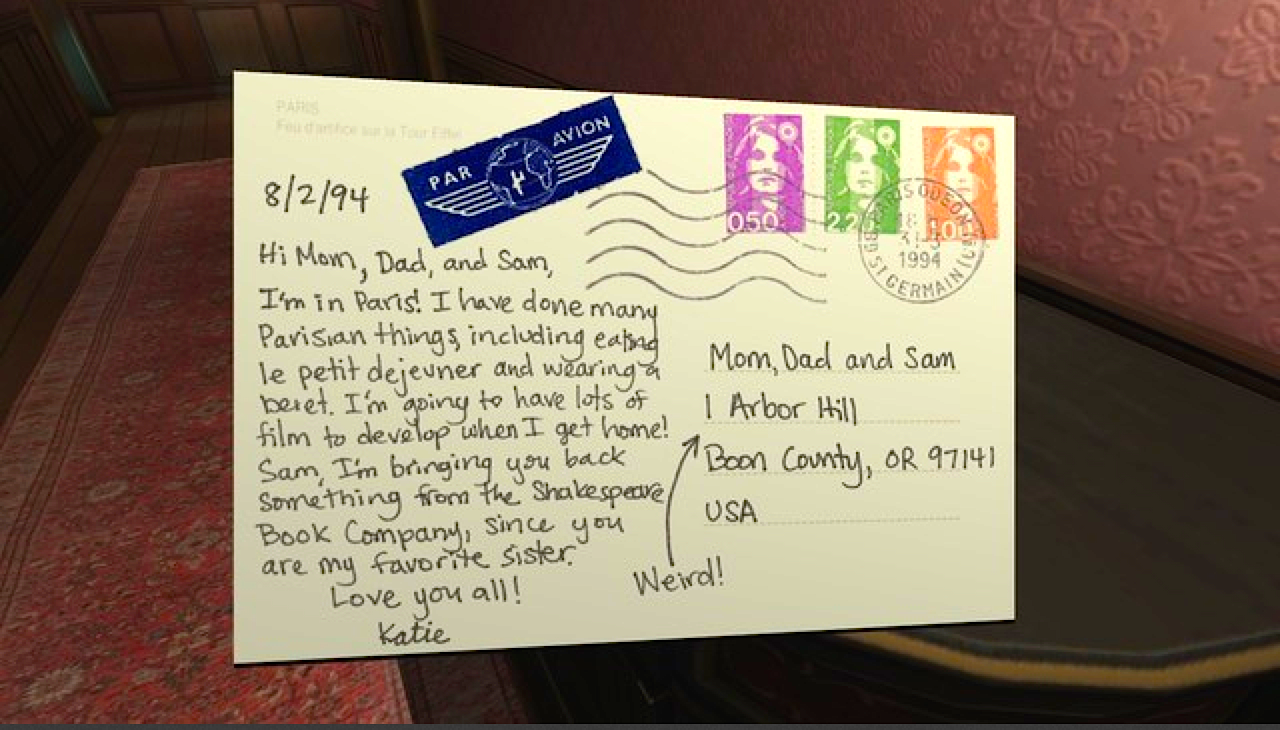 PARIS
Feu d'artifice sur la Tour Eiffel
PAR AVION
8/2/94
Hi Mom, Dad, and Sam,
I'm in Paris! I have done many
Parisian things, including eating
le petit dejeuner and wearing a
beret. I'm going to have lots of
film to develop when I get home!
Sam, I'm bringing you back
something from the Shakespeare
Book Company, since you
are my favorite sister.
Love you all!
Katie
0,50
PARIS ODEON
1994
BD ST GERMAIN
Mom, Dad and Sam
1 Arbor Hill
Boon County, OR 97141
USA
Weird!